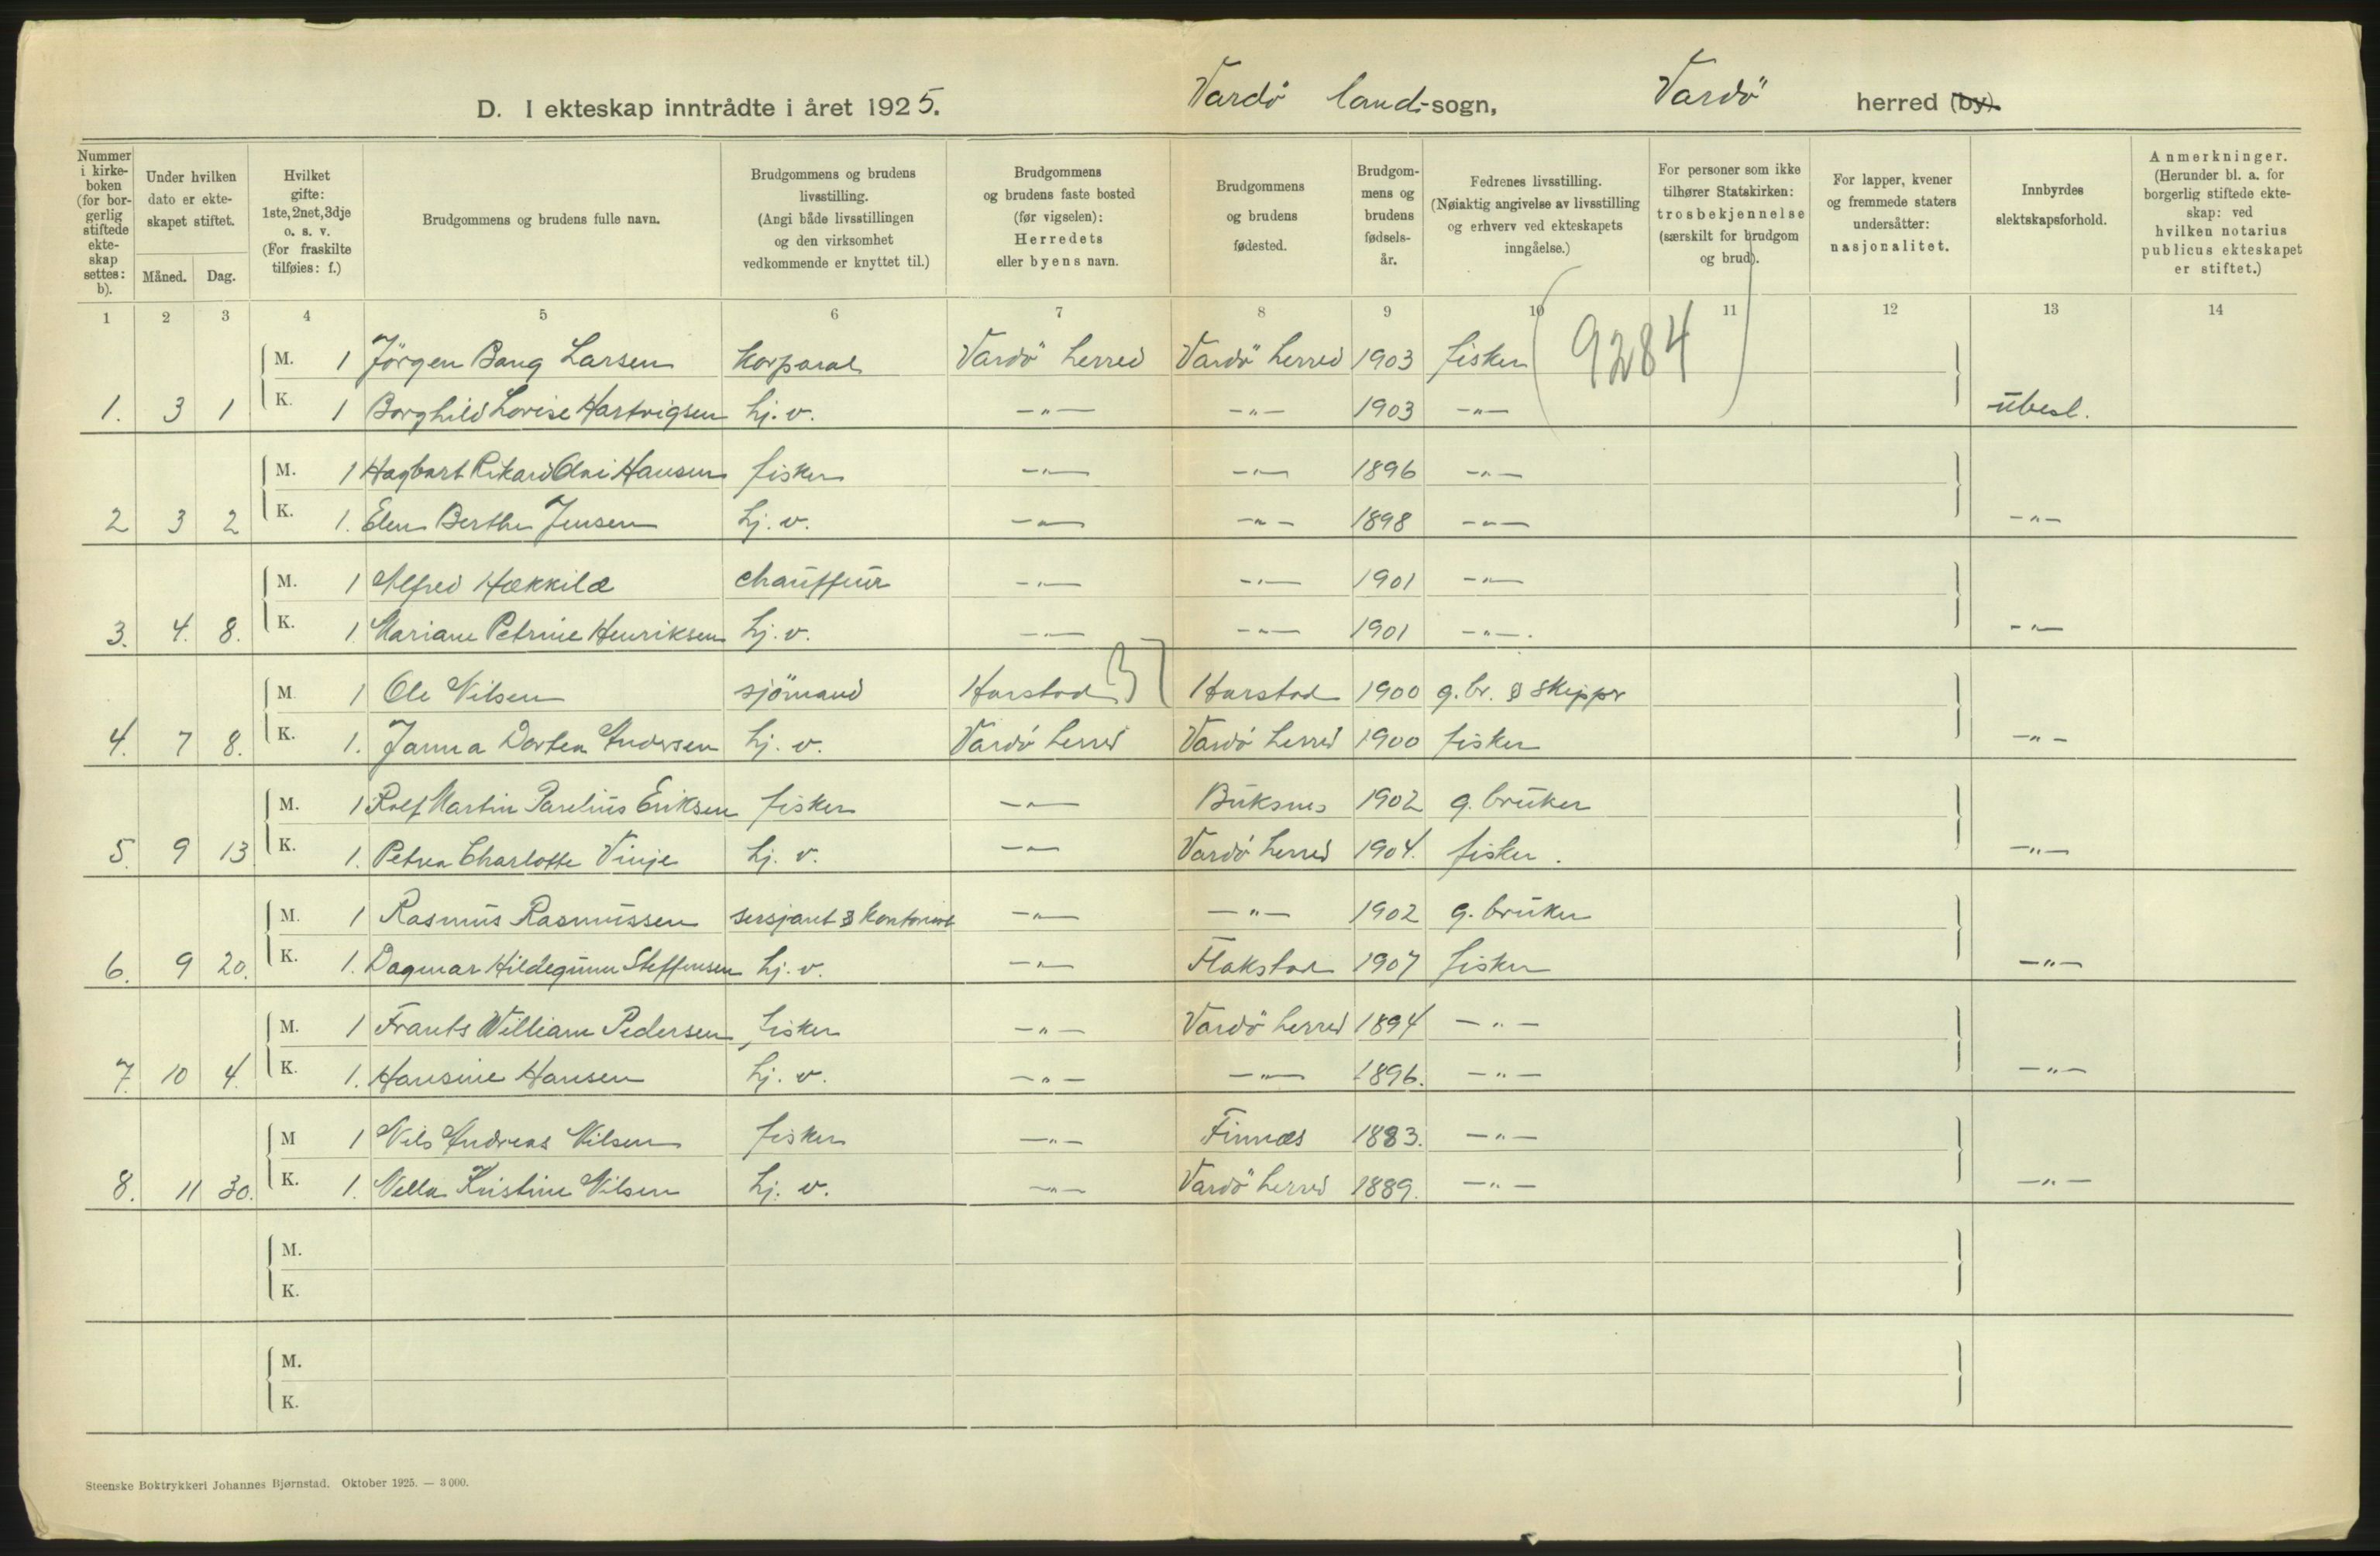 D. I ekteskap inntrådte i året 1925. Vardö land-sogn, Vardö herred (by).
Nummer i kirke-boken (for bor-gerlig stiftede ekte-skap settes: b).
Under hvilken dato er ekte-skapet stiftet.
Måned. Dag.
Hvilket gifte: 1ste, 2net, 3dje o. s. v. (For fraskilte tilføies: f.)
Brudgommens og brudens fulle navn.
Brudgommens og brudens livsstilling. (Angi både livsstillingen og den virksomhet vedkommende er knyttet til.)
Brudgommens og brudens faste bosted (før vigselen): Herredets eller byens navn.
Brudgommens og brudens fødested.
Brudgom-mens og brudens fødsels-år.
Fedrenes livsstilling. (Nøiaktig angivelse av livsstilling og erhverv ved ekteskapets inngåelse.)
For personer som ikke tilhører Statskirken: trosbekjennelse (særskilt for brudgom og brud).
For lapper, kvener og fremmede staters undersåtter: nasjonalitet.
Innbyrdes slektskapsforhold.
Anmerkninger. (Herunder bl. a. for borgerlig stiftede ekte-skap: ved hvilken notarius publicus ekteskapet er stiftet.)
1 2 3 4 5 6 7 8 9 10 11 12 13 14
M. 1 Jörgen Bang Larsen korporal Vardö herred Vardö herred 1903 fisker (9284)
1. 3 1 K. 1 Borghild Lovise Hartvigsen hj. v. -"- -"- 1903 -"- ubesl.
M. 1 Hagbart Rikard Olai Hansen fisker -"- -"- 1896 -"-
2 3 2 K. 1. Elen Berthe Jensen hj. v. -"- -"- 1898 -"- -"-
M. 1 Alfred Hækkilæ chauffeur -"- -"- 1901 -"-
3. 4. 8. K. 1. Mariane Petrine Henriksen hj. v. -"- -"- 1901 -"-. -"-
M. 1 Ole Nilsen sjömand Harstad Harstad 1900 g.br. & skipper
4. 7 8. K. 1. Janna Dortea Andersen hj. v. Vardö herred Vardö herred 1900 fisker -"-
M. 1 Rolf Martin Parelius Eriksen fisker -"- Buksnes 1902 g. bruker
5. 9 13 K. 1. Petrea Charlotte Vinje hj. v. -"- Vardö herred 1904. fisker. -"-
M. 1 Rasmus Rasmussen sersjant & kontorist -"- -"- 1902 g. bruker
6. 9 20. K. 1. Dagmar Hildegunn Steffensen hj. v. -"- Flakstad 1907 fisker -"-
M. 1 Frants William Pedersen fisker -"- Vardö herred 1894 -"-
7. 10 4. K. 1. Hansine Hansen hj. v. -"- -"- 1896. -"- -"-
M 1 Nils Andreas Nilsen fisker -"- Finnæs 1883. -"-
8. 11 30. K. 1. Nella Kristine Nilsen hj. v. -"- Vardö herred 1889. -"- -"-
M.
K.
M.
K.
Steenske Boktrykkeri Johannes Bjørnstad. Oktober 1925. — 3 000.